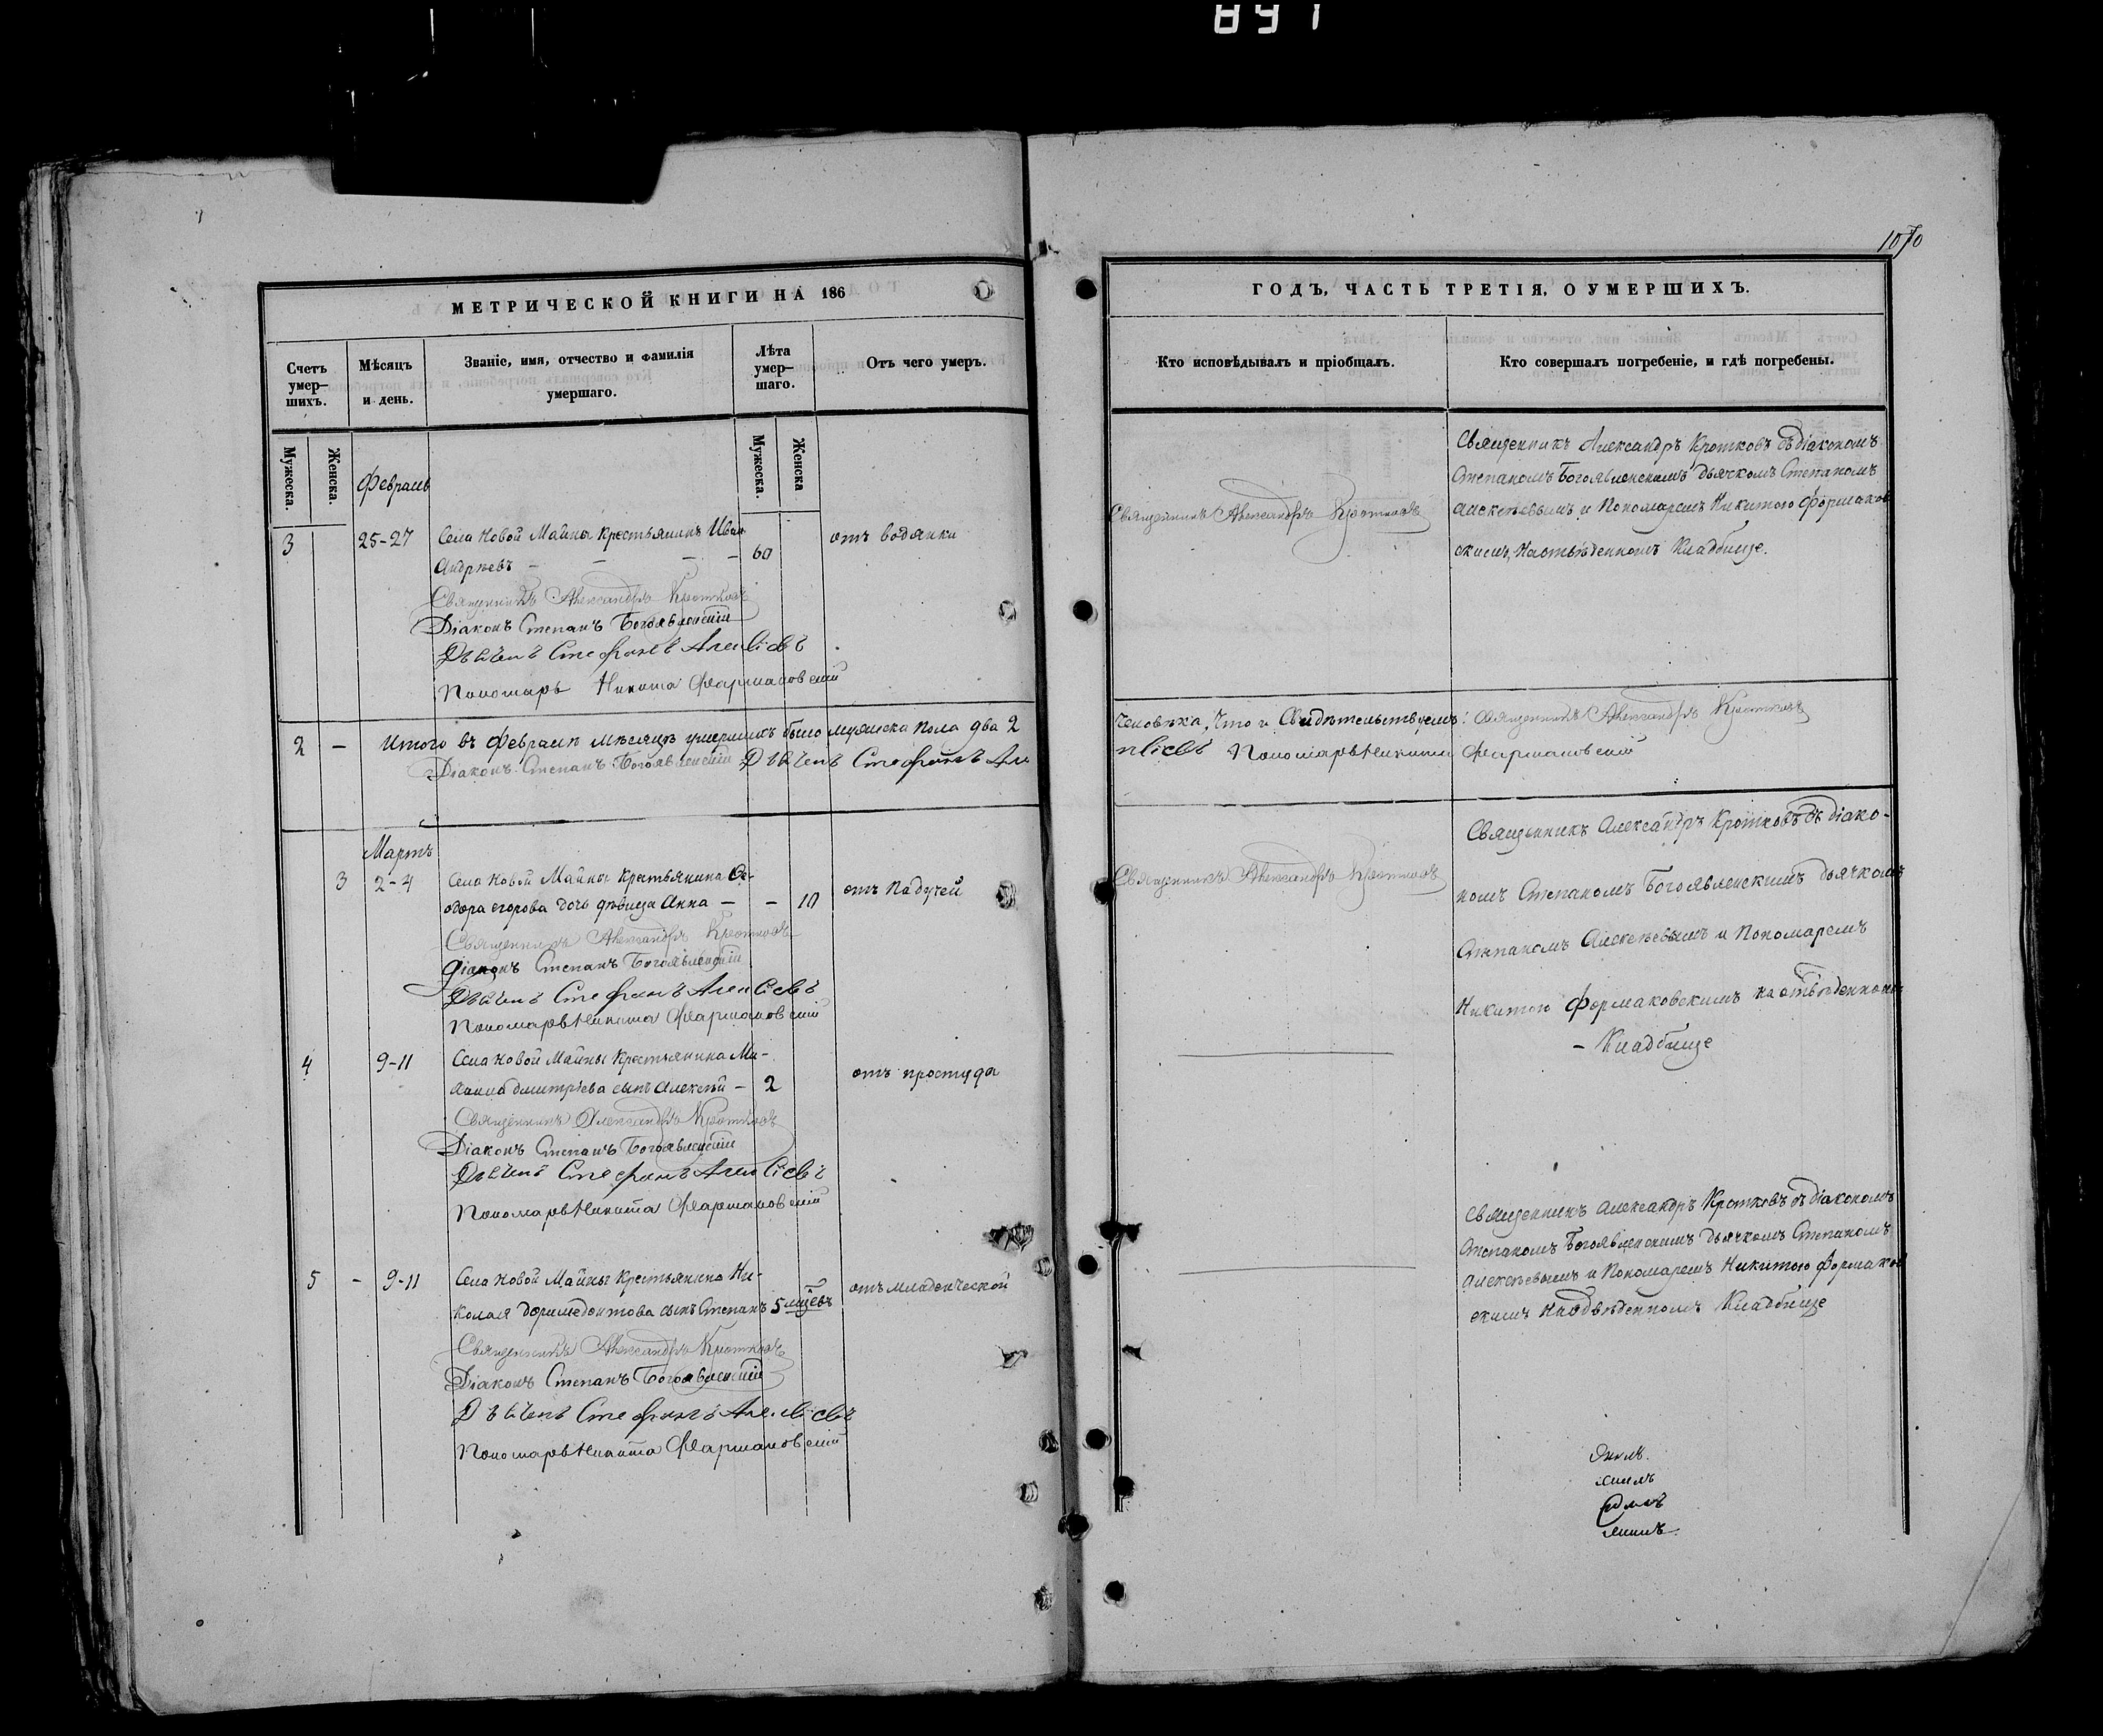 891
1070
МЕТРИЧЕСКОЙ КНИГИ НА 186
Счетъ умер-шихъ.
Мѣсяцъ и день.
Званіе, имя, отчество и фамилія умершаго.
Лѣта умер-шаго.
Отъ чего умеръ.
Мужеска.
Женска.
Мужеска.
Женска
Февраль
3
25-27
Села Новой Майны крестьянинъ Иван
Андрѣевъ
60
отъ водянки
Священникъ Александръ Кротковъ
Діаконъ Степанъ Богоявленскій
Стефанъ
Пономарь Никита Фармаковскій
2 — Итого въ Февралѣ мѣсяцѣ умершихъ было мужеска пола два 2
Діаконъ Степанъ Богоявленскій Стефанъ
Мартъ
3
2-4
Села Новой Майны крестьянина Ѳе-
одора егорова дочь дѣвица Анна — — 10
отъ падучей
Священникъ Александръ Кротковъ
Діаконъ Степанъ Богоявленскій
Стефанъ
Пономарь Никита Фармаковскій
4
9-11
Села Новой Майны крестьянина Ми-
Дмитріева сынъ Алексѣй — 2
отъ простуды
Священникъ Александръ Кротковъ
Діаконъ Степанъ Богоявленскій
Стефанъ
Пономарь Никита Фармаковскій
5 -
9-11
Села Новой Майны крестьянина Ни-
колая доримедонтова сынъ Степанъ 5
отъ младенческой
Священникъ Александръ Кротковъ
Діаконъ Степанъ Богоявленскій
Стефанъ
Пономарь Никита Фармаковскій
ГОДЪ, ЧАСТЬ ТРЕТІЯ, О УМЕРШИХЪ.
Кто исповѣдывалъ и пріобщалъ.
Кто совершалъ погребеніе, и гдѣ погребены.
Священникъ Александръ Кротковъ
Священникъ Александръ Кротковъ съ діакономъ
Степаномъ Богоявленскимъ дьячкомъ Степаномъ
Алексѣевымъ и Пономаремъ Никитою Формаков
скимъ, Кладбище.
человѣка, что и Свидѣтельствуемъ: Священникъ Александръ Кротковъ
Пономарь Никита Фармаковскій
Священникъ Александръ Кротковъ
Священникъ Александръ Кротковъ съ діако-
номъ Степаномъ Богоявленскимъ дьячкомъ
Степаномъ Алексѣевымъ и Пономаремъ
Никитою Формаковскимъ
- Кладбище
Священникъ Александръ Кротковъ съ діакономъ
Степаномъ Богоявленскимъ дьячкомъ Степаномъ
Алексѣевымъ и Пономаремъ Никитою Формаков
скимъ Кладбище